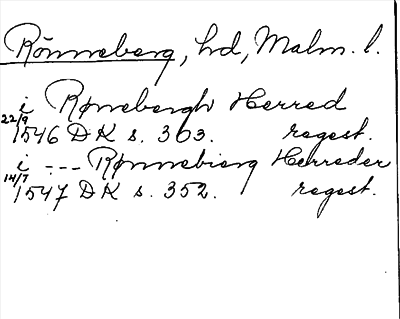 Rönneberg, hd, Malm. l.
i Rønebergh Herred
22/9 1546 DK s. 303. regest.
i --- Rønnebierg Herreder
14/7 1547 DK s. 352. regest.